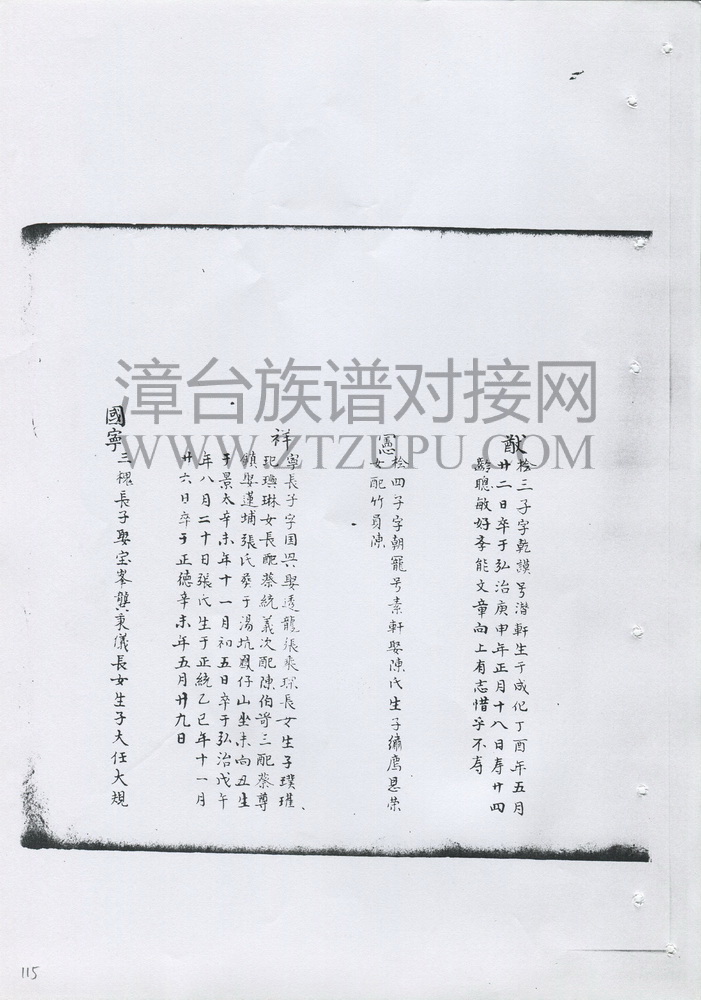 猷
桧三子字乾謨号潜軒生于成化丁酉年五月
廿二日卒于弘治庚申年正月十八日寿廿四
龄聰敏好季能文章向上有志惜乎不寿
憲
桧四子字朝寵号素軒娶陳氏生子繡鷹恩榮
女配竹員陳
祥
寧長子字国兴娶透龍張乘琛長女生子璞瑾
玘璵琳女長配蔡統義次配陳伯諤三配蔡尊
鎮娶蓮埔張氏葬于湯坑仔山坐未向丑生
于景太辛未年十一月初五日卒于弘治戊午
年八月二十日張氏生于正統乙巳年十一月
廿六日卒于正德辛未年五月廿九日
國寧
三槐長子娶宝峯龔秉儀長女生子大任大規
漳台族谱对接网
WWW.ZTZUPU.COM
115